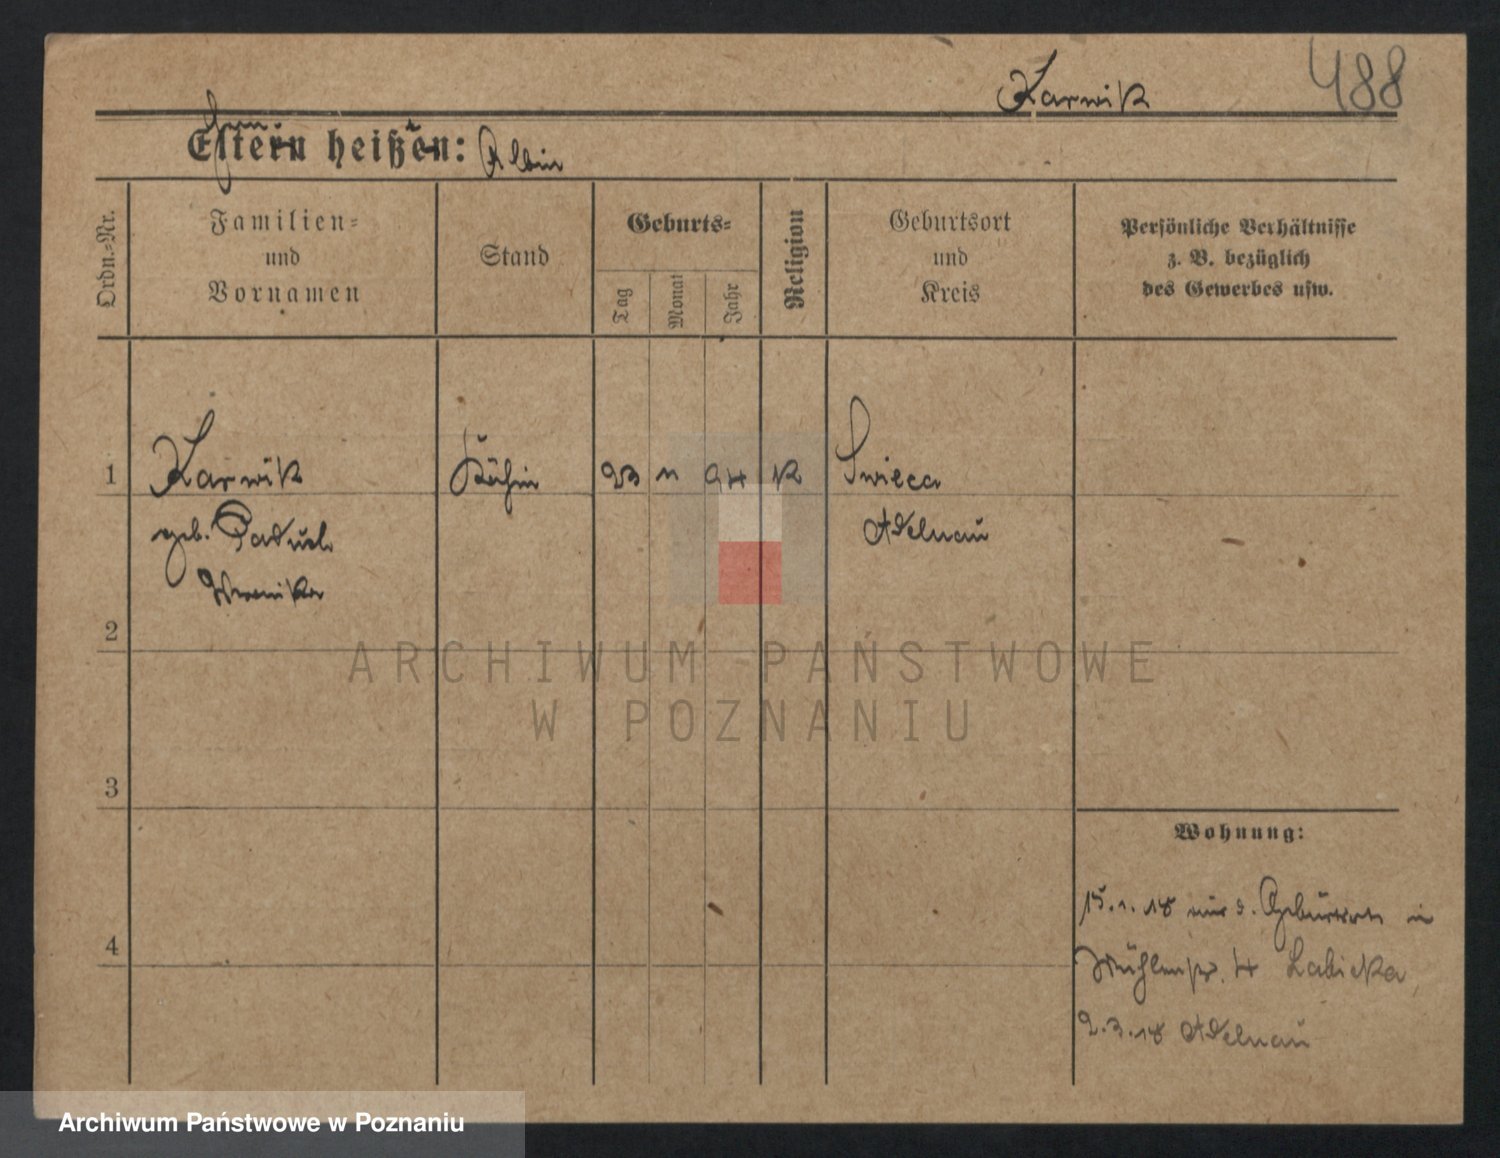 Karwik 488
Eltern heißen: Albin
Ordn.-Nr.
Familien-
und
Vornamen
Stand
Geburts-
Tag
Monat
Jahr
Religion
Geburtsort
und
Kreis
Persönliche Verhältnisse
z. B. bezüglich
des Gewerbes usw.
1 Karwik Köchin 23 11 94 K Swieca
geb. Adelnau
Weronika
2
ARCHIWUM PAŃSTWOWE
W POZNANIU
3
Wohnung:
15.1.18 d. Geburtsort in
4 Mühlenstr. 4 Labicka
2.3.18 Adelnau
Archiwum Państwowe w Poznaniu